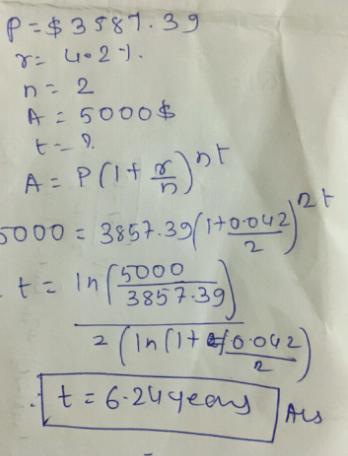 P = $3587.39
r = 4.2%.
n = 2
A = 5000$
t = ?
A = P(1+ r/n)^nt
5000 = 3857.39(1+0.042/2)^2t
t = ln(5000/3857.39)/2(ln(1+0.042/2)
∴ t = 6.24 years Ans